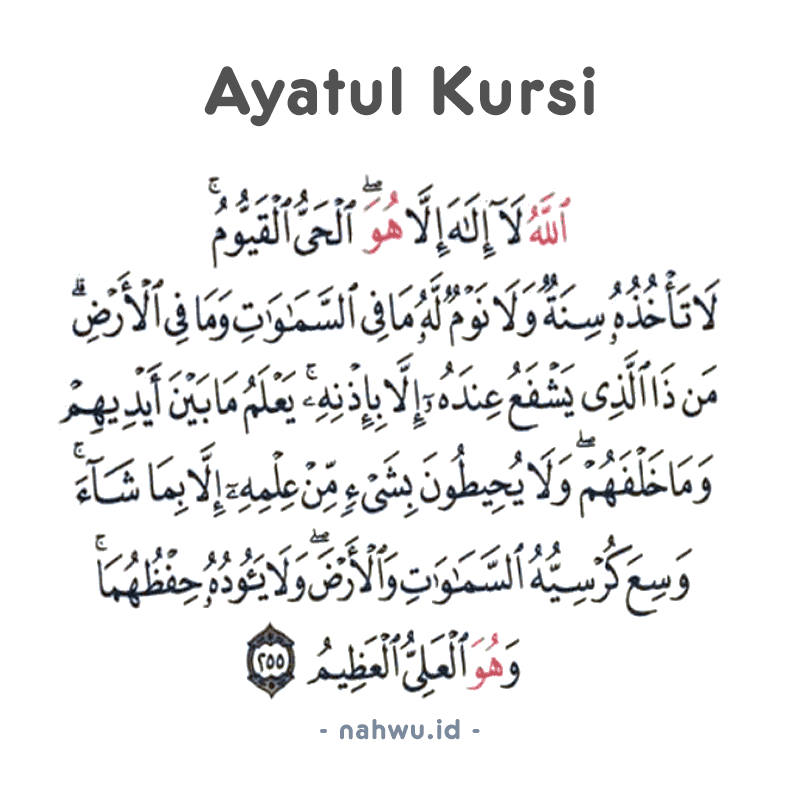 Ayatul Kursi
ٱللَّهُ لَآ إِلَـٰهَ إِلَّا هُوَ ۖ ٱلْحَىُّ ٱلْقَيُّومُ ۚ
لَا تَأْخُذُهُۥ سِنَةٌ وَلَا نَوْمٌ لَّهُۥ مَا فِى ٱلسَّمَـٰوَٰتِ وَمَا فِى ٱلْأَرْضِ ۗ
مَن ذَا ٱلَّذِى يَشْفَعُ عِندَهُۥٓ إِلَّا بِإِذْنِهِۦ ۚ يَعْلَمُ مَا بَيْنَ أَيْدِيهِمْ
وَمَا خَلْفَهُمْ ۖ وَلَا يُحِيطُونَ بِشَىْءٍ مِّنْ عِلْمِهِۦٓ إِلَّا بِمَا شَآءَ ۚ
وَسِعَ كُرْسِيُّهُ ٱلسَّمَـٰوَٰتِ وَٱلْأَرْضَ ۖ وَلَا يَـُٔودُهُۥ حِفْظُهُمَا ۚ
وَهُوَ ٱلْعَلِىُّ ٱلْعَظِيمُ ٢٥٥
- nahwu.id -